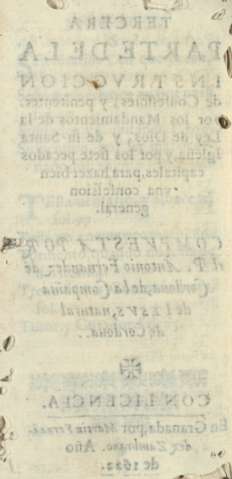 TERCERA
PARTE DE LA
INSTRVCCION
de Confessores, y penitentes:
por los Mandamientos de la
Ley de Dios, y de su Santa
Iglesia, y por los siete pecados
capitales, para hazer bien
vna confession
general.
COMPVESTA POR
el P. Antonio Fernandez de
Cordoua, de la Compañia
de IESVS, natural
de Cordoua.
CON LICENCIA.
En Granada, por Martin Fernan-
dez Zambrano. Año
de 1622.